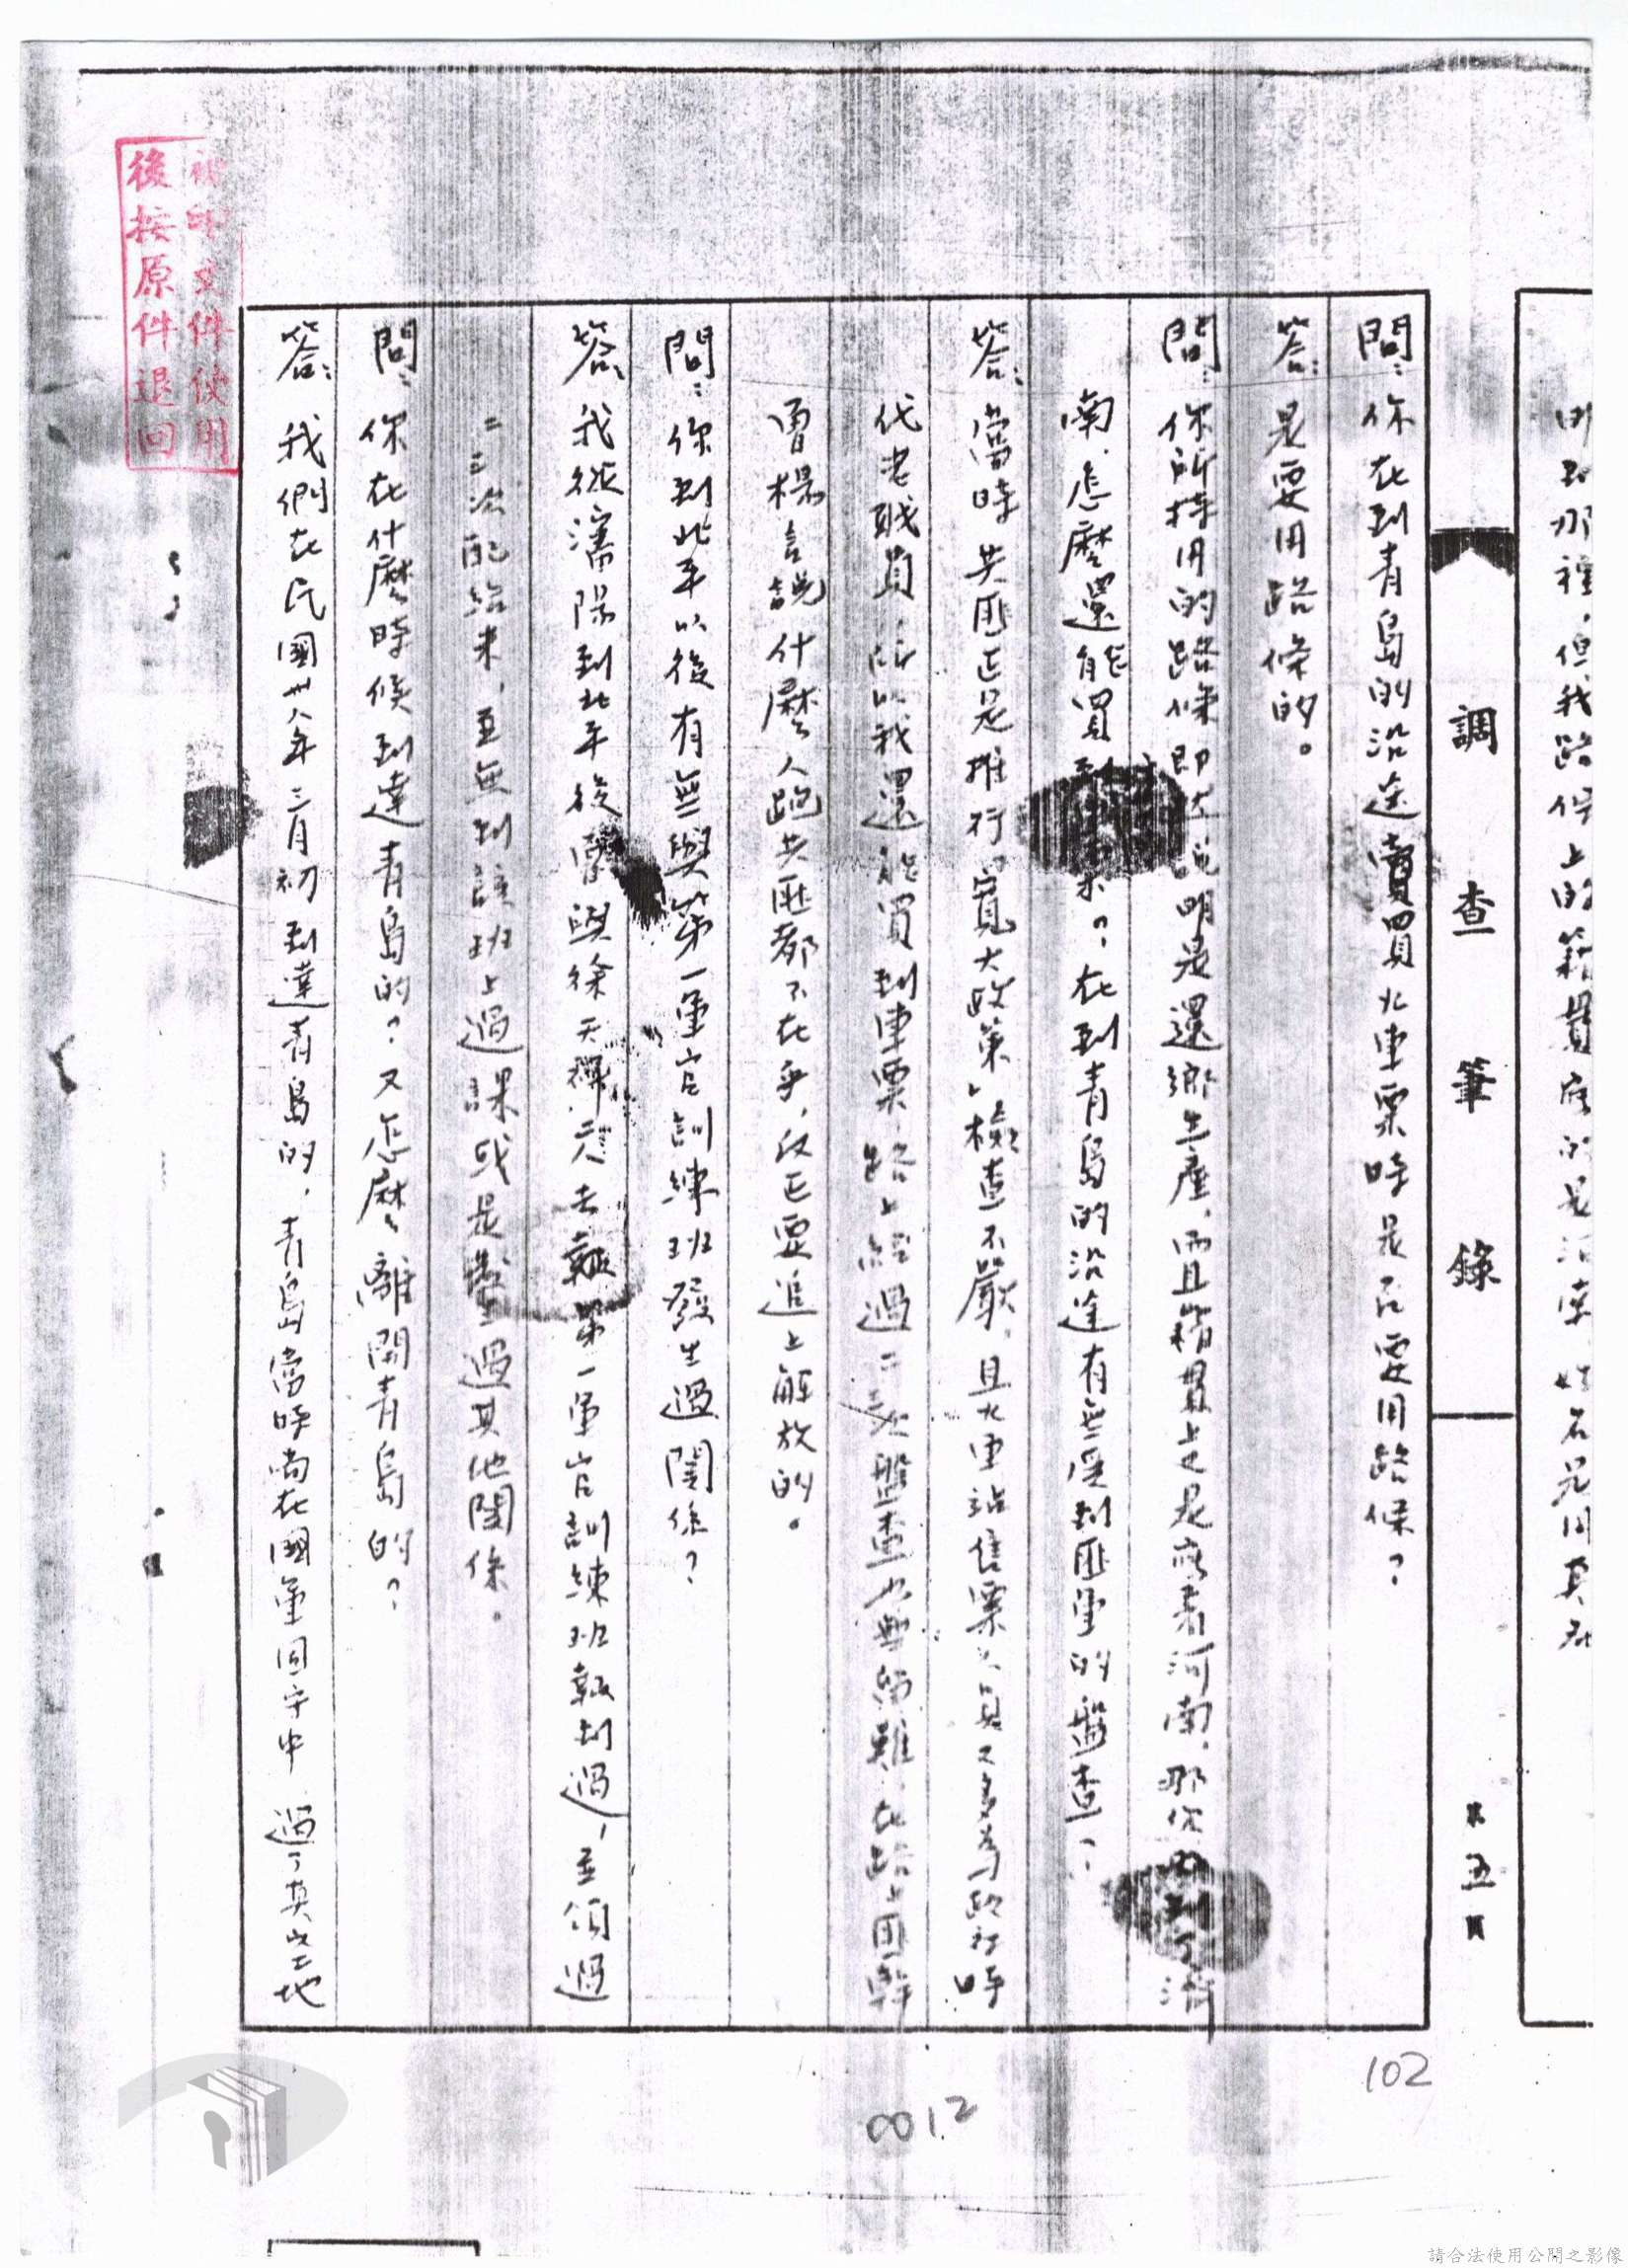 但我路條上的籍貫
調查筆錄
第五頁
問:你在到青島的沿途賣買火車票時是否要用路條?
答:是要用路條的。
問:你所持用的路條即上說明是還鄉生產,而且籍貫上又是寫着河南,那你到了濟
南,怎麼還能買到車票?在到青島的沿途有無受到匪軍的盤查?
答:當時共匪正是推行寬大政策,檢查不嚴,且火車站售票人員又多為政府時
代老職員,所以我還能買到車票,路上經過二三次盤查也無留難,在路上匪幹
曾揚言說什麼人跑共匪都不在乎,反正要追上解放的。
問:你到北平以後有無與第一軍官訓練班發生過關係?
答:我從瀋陽到北平後曾與徐天祥二人去第一軍官訓練班報到過,並領過
二三次配給來,並無到該班上過課或是發生過其他關係。
問:你在什麼時候到達青島的?又怎麼離開青島的?
答:我們在民國卅八年三月初到達青島的,青島當時尚在國軍固守中,過了真空地
後按原件退回
文件使用
102
0012
請合法使用公開之影像